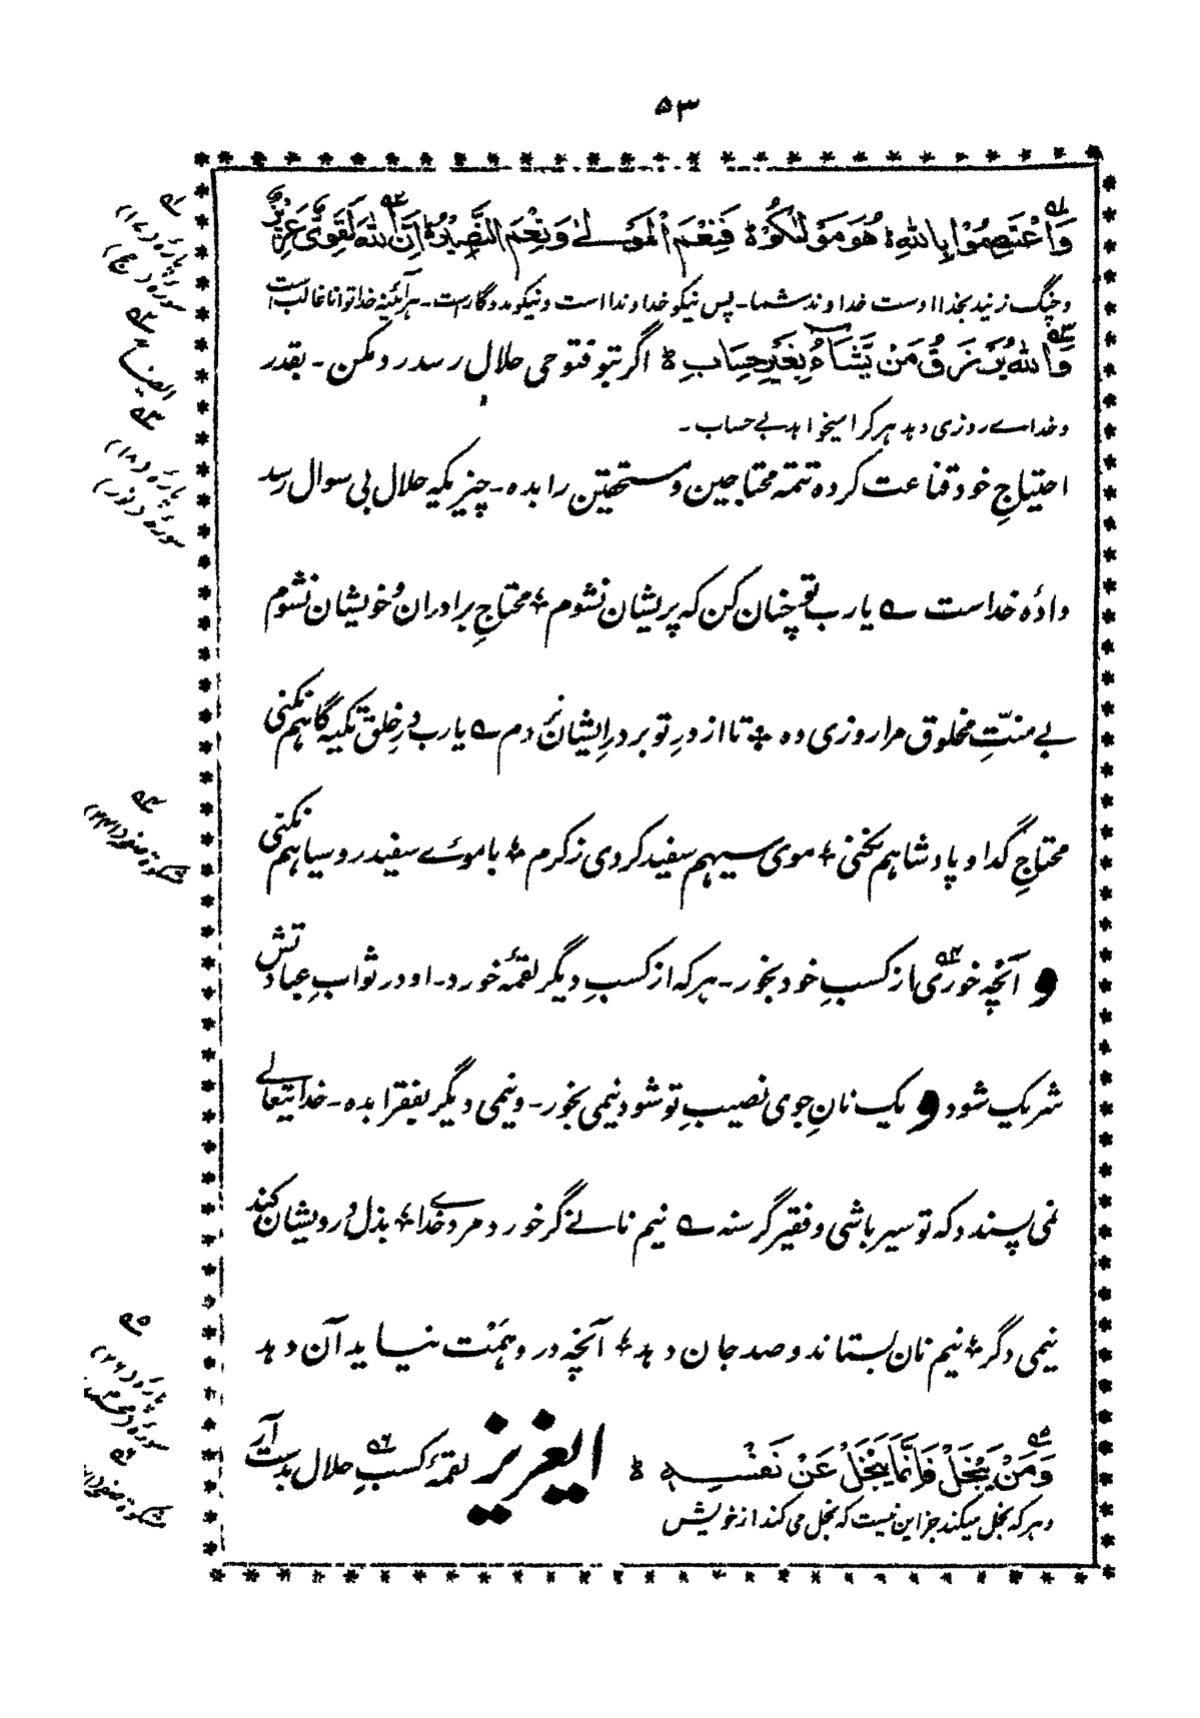 ۵۳
وَاعْتَصِمُوْا بِاللّٰهِ ؕ هُوَ مَوْلٰىكُمْ ۚ فَنِعْمَ الْمَوْلٰے وَنِعْمَ النَّصِيْرُ ؕ اِنَّ اللّٰهَ لَقَوِىٌّ عَزِيْزٌ
وچنگ زنید بخدا اوست خداوند شما۔ پس نیکو خداوندا است ونیکو مددگارست۔ ہرآئینہ خدا توانا غالب است
وَاللّٰهُ يَرْزُقُ مَنْ يَّشَآءُ بِغَيْرِ حِسَابٍ ؕ اگر بتو فتوحی حلال رسد رد مکن۔ بقدر
وخداے روزی دہد ہرکرا میخواہد بے حساب۔
احتیاجِ خود قناعت کردہ تتمہ محتاجین ومستحقین را بدہ۔ چیزیکہ حلال بی سوال رسد
دادۂ خداست ے یارب تو چنان کن کہ پریشان نشوم ٭ محتاجِ برادران وخویشان نشوم
بے منّتِ مخلوق مرا روزی دہ ٭ تا از درِ تو بر درِ ایشان نروم ے یارب ز درِ خلق تکیہ گاہم نکنی
محتاجِ گدا و پادشاہم نکنی ٭ موی سیہم سفید کردی ز کرم ٭ با موئے سفید روسیاہم نکنی
و آنچہ خوری از کسبِ خود بخور۔ ہرکہ از کسبِ دیگر لقمۂ خورد۔ او در ثوابِ عبادتش
شریک شود و یک نانِ جوی نصیبِ تو شود نیمی بخور۔ ونیمی دیگر بفقرا بدہ۔ خدایتعالے
نمی پسندد کہ تو سیر باشی وفقیر گرسنہ ے نیم نانے گر خورد مردے خدا ٭ بذل درویشان کند
نیمی دگر ٭ نیم نان بستاند و صد جان دہد ٭ آنچہ در وہمت نیاید آن دہد
وَمَنْ يَّبْخَلْ فَاِنَّمَا يَبْخَلُ عَنْ نَفْسِهٖ ؕ ایعزیز لقمۂ کسبِ حلال بدست آر
وہرکہ بخل میکند جز این نیست کہ بخل می کند از خویش
۵۱
پارۂ (۱۷)
سورۂ (حج)
۵۲
ایضاً
۵۳
پارۂ (۱۸)
سورۂ (نور)
۵۴
۵۵
پارۂ (۲۶)
سورۂ (محمد)
۵۶